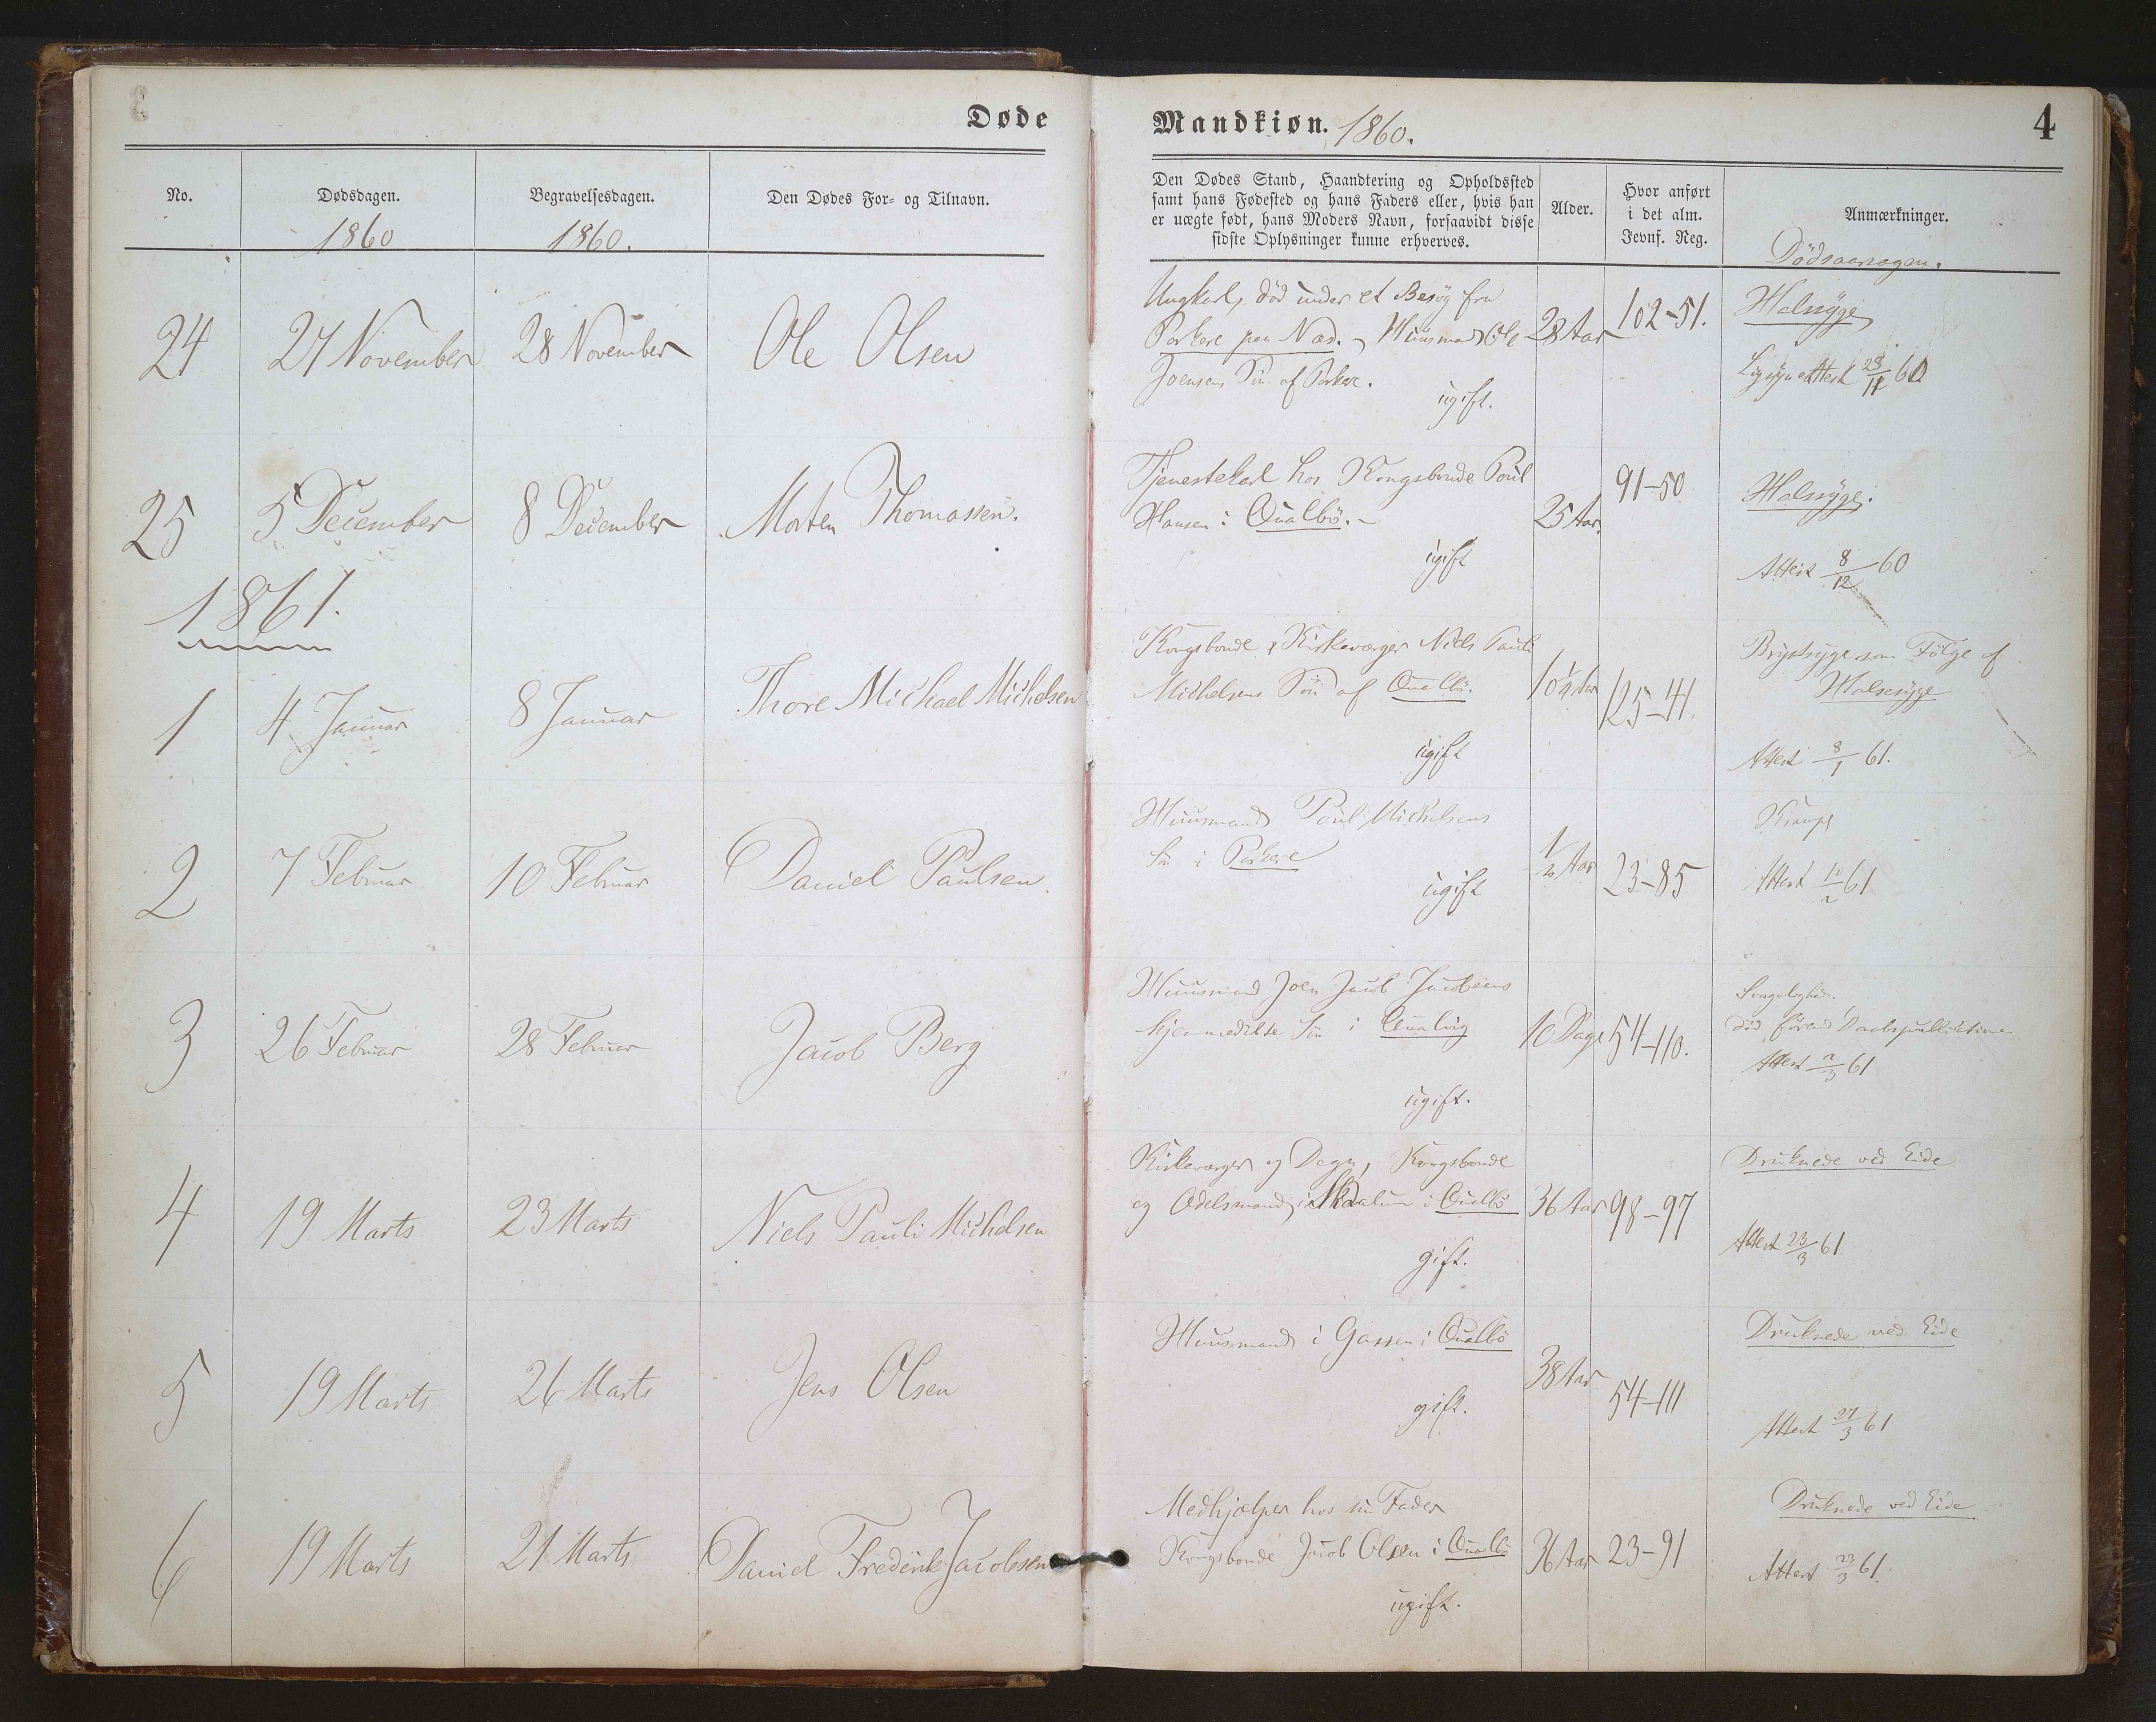 Døde
Mandkiøn. 1860.
4
No.
Dødsdagen.
1860
Begravelsesdagen.
1860.
Den Dødes For- og Tilnavn.
Den Dødes Stand, Haandtering og Opholdssted
samt hans Fødested og hans Faders eller, hvis han
er uægte født, hans Moders Navn, forsaavidt disse
sidste Oplysninger kunne erhverves.
Alder.
Hvor anført
i det alm.
Jevnf. Reg.
Anmærkninger.
Dödsaarsagen.
24
27 November
28 November
Ole Olsen
Ungkarl, död under et Besög fra
Porkere paa Næs. Huusmand Ole
Joensens Sön af Porkere.
ugift.
28 Aar
102-51.
Halssyge
Ligsynsattest 28/11 60
25
5 December
8 December
Morten Thomassen.
Tjenestekarl hos Kongsbonde Poul
Hansen i Qualbö.
ugift
25 Aar.
91-50
Halssyge.
Attest 8/12 60
1861.
1
4 Januar
8 Januar
Thore Michael Michelsen
Kongsbonde & Kirkeværger Niels Pauli
Michelsens Sön af Qualbö.
ugift
10 1/4 Aar
125-41.
Brystsyge som Fölge af
Halssyge
Attest 8/1 61.
2
7 Februar
10 Februar
Daniel Paulsen.
Huusmand Poul Michelsens
Sön i Porkere
ugift
1/2 Aar
23-85
Krampe
Attest 10/2 61
3
26 Februar
28 Februar
Jacob Berg
Huusmand Joen Jacob Jacobsens
hjemmedöbte Sön i Qualvig
ugift.
10 Dage
54-110.
Svagelighed.
död förend Daabspublikationen
Attest 2/3 61
4
19 Marts
23 Marts
Niels Pauli Michelsen
Kirkeværger og Degn, Kongsbonde
og Odelsmand i i Qualbö
gift.
36 Aar
98-97
Druknede ved Eide
Attest 23/3 61
5
19 Marts
26 Marts
Jens Olsen
Huusmand i Gassen i Qualbö
gift.
38 Aar
54-111
Druknede ved Eide
Attest 27/3 61
6
19 Marts
21 Marts
Daniel Frederik Jacobsen
Medhjælper hos sin Fader
Kongsbonde Jacob Olsen i Qualbö
ugift.
36 Aar
23-91
Druknede ved Eide
Attest 23/3 61.